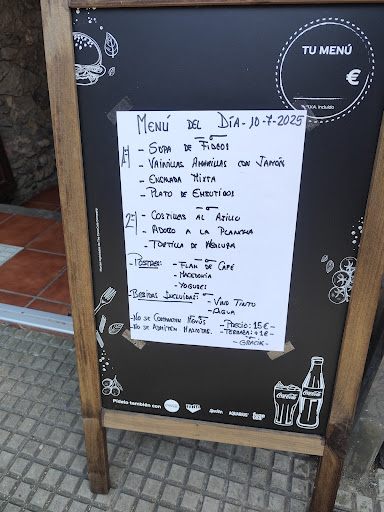 TU MENÚ
€
I.V.A. Incluido
MENÚ DEL DÍA - 10-7-2025
1º - SOPA DE FIDEOS
- VAINILLAS AMARILLAS CON JAMÓN
- ENSALADA MIXTA
- PLATO DE EMBUTIDOS
2º - COSTILLAS AL AJILLO
- ADOBO A LA PLANCHA
- TORTILLA DE
- POSTRES: - FLAN DE CAFÉ
- MACEDONIA
- YOGURES
- BEBIDAS INCLUIDAS: - VINO TINTO
- AGUA
- NO SE COMPARTEN MENÚS
- NO SE ADMITEN MASCOTAS.
- PRECIO: 15 €
- TERRAZA: +1 €
- GRACIAS -
Pídelo también con
Coca-Cola
Coca-Cola
AQUARIUS